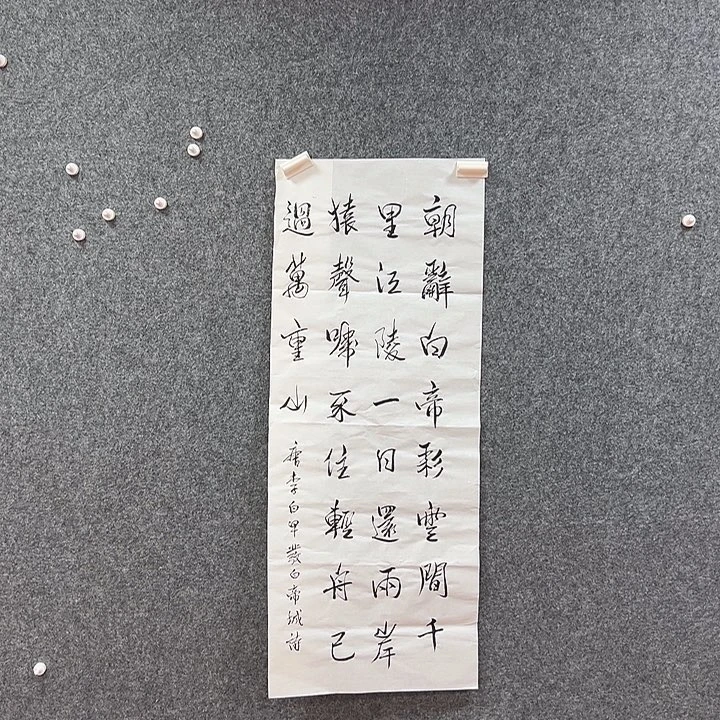 朝辭白帝彩雲間千
里江陵一日還兩岸
猿聲啼不住輕舟已
過萬重山
唐李白早發白帝城詩